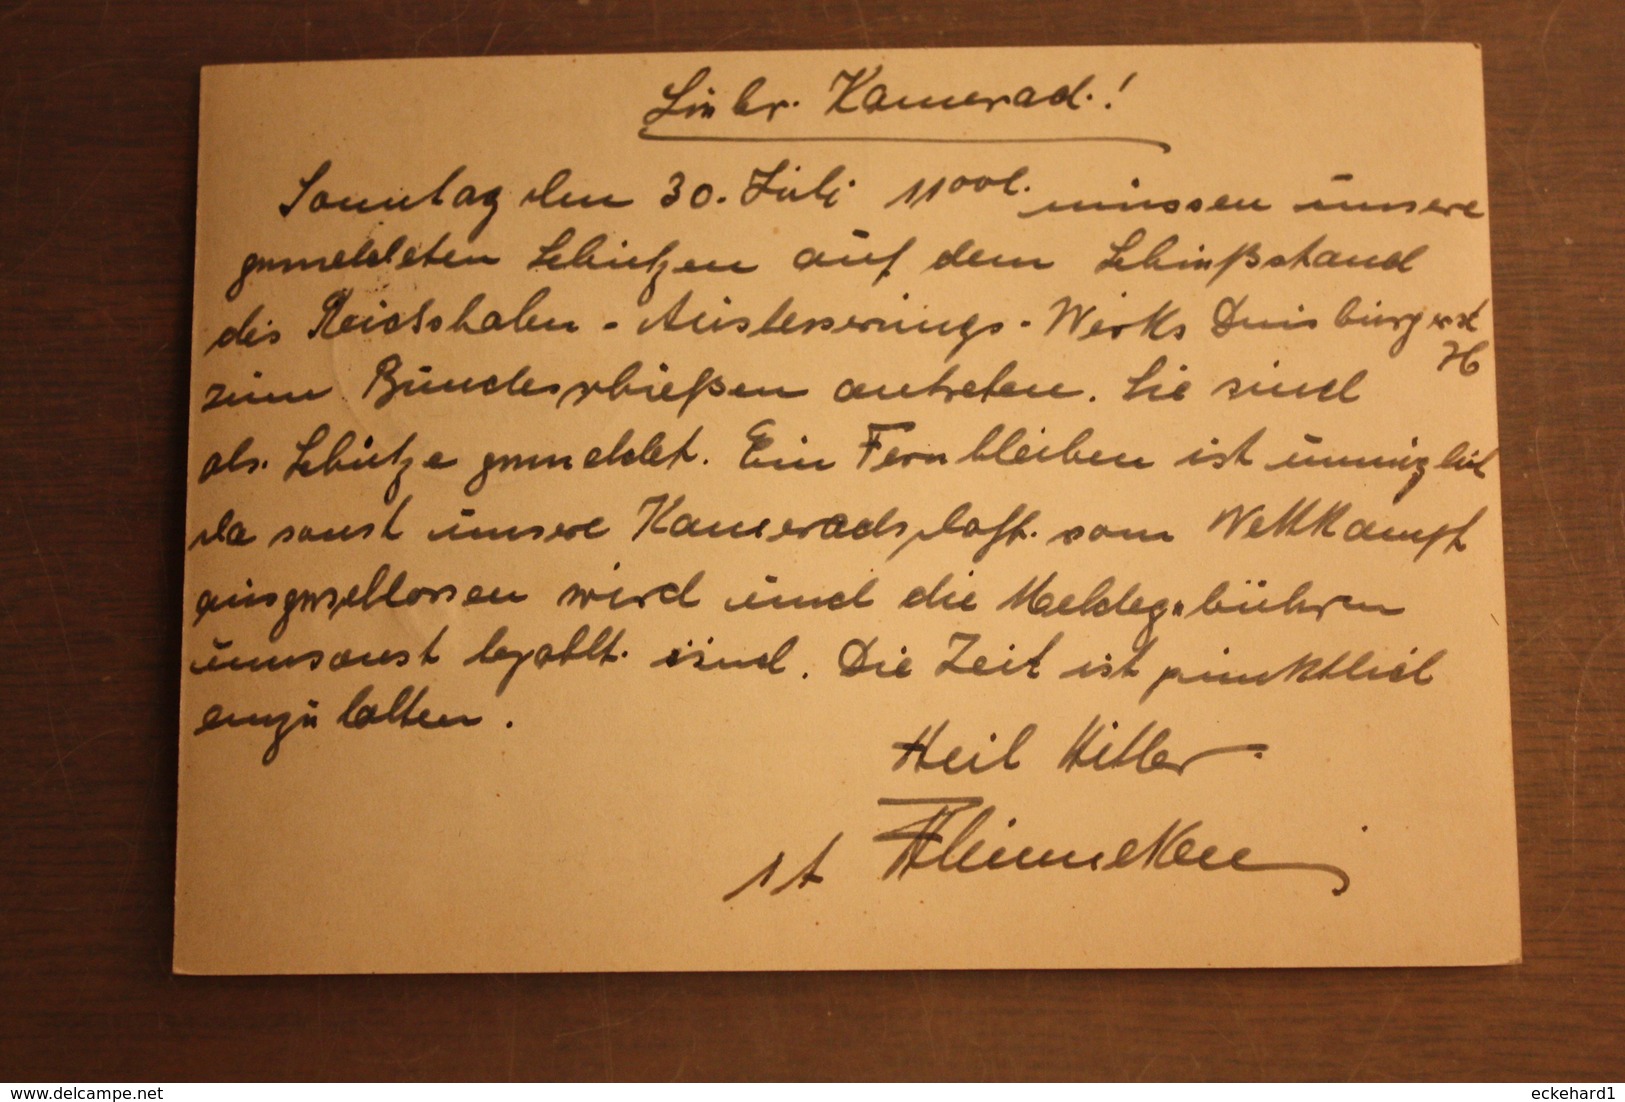 Lieber Kamerad!
Sonntag den 30. Juli 11 00 müssen unsere
gemeldeten Schützen auf dem Schießstand
des Reichsbahn-Ausbesserungs-Werks Duisburgerst
zum Bundesschießen antreten. Sie sind
als Schütze gemeldet. Ein Fernbleiben ist unmöglich
da sonst unsere Kameradschaft vom Wettkampf
ausgeschlossen wird und die Meldegebühren
umsonst bezahlt sind. Die Zeit ist pünktlich
einzuhalten.
Heil Hitler
www.delcampe.net
eckehard1